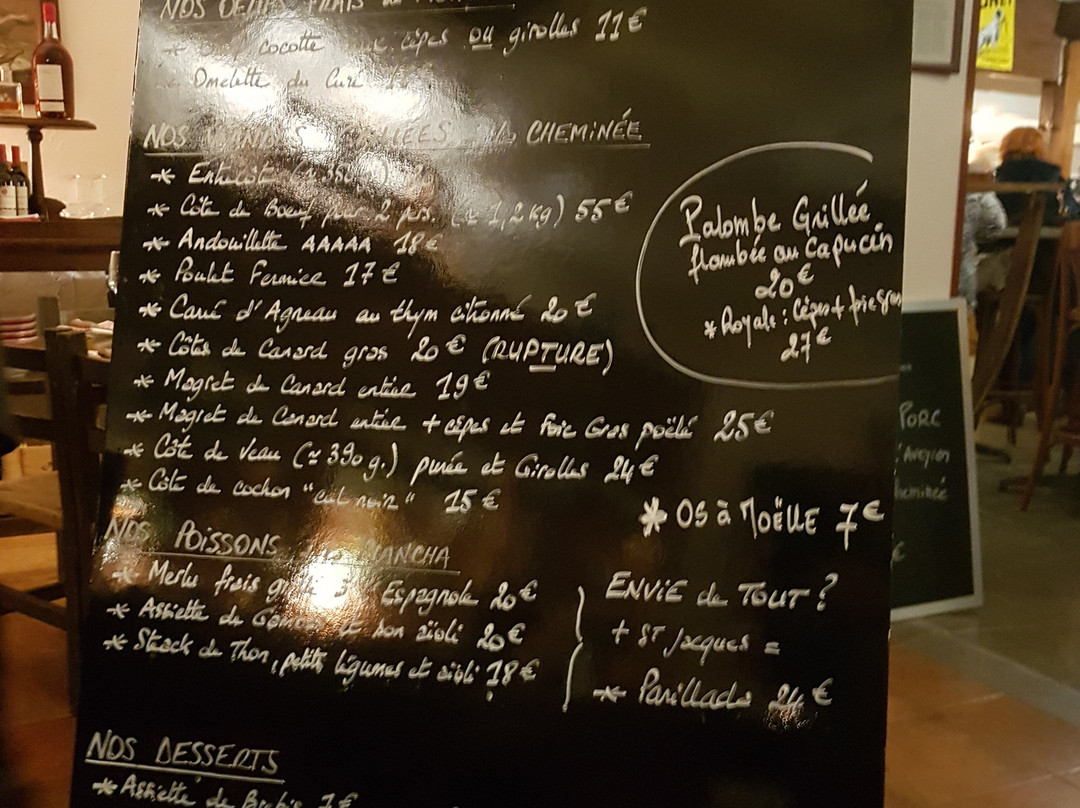 NOS OEUFS FRAIS
* cocotte aux cèpes ou girolles 11€
Omelette du Curé
NOS VIANDES GRILLÉES CHEMINÉE
* Entrecôte
* Côte de Boeuf pour 2 pers. (≃ 1,2 kg) 55€
* Andouillette AAAAA 18€
* Poulet Fermier 17€
* Carré d'Agneau au thym citronné 20€
* Côtes de Canard gras 20€ (RUPTURE)
* Magret de Canard entier 19€
* Magret de Canard entier + cèpes et Foie Gras poêlé 25€
* Côte de Veau (≃ 390 g.) purée et Girolles 24€
* Côte de cochon "cul noir" 15€
Palombe Grillée
flambée au Capucin
20€
* Royale : Cèpes + foie gras
27€
* OS à MOËLLE 7€
NOS POISSONS PLANCHA
* Merlu frais grillé Espagnole 20€
* Assiette de Gambas et son aïoli 20€
* Steack de Thon, petits légumes et aïoli 18€
ENVIE de TOUT ?
+ ST Jacques =
* Parillada 24€
NOS DESSERTS
* Assiette de Brebis 7€
PORC
Aveyron
cheminée
€